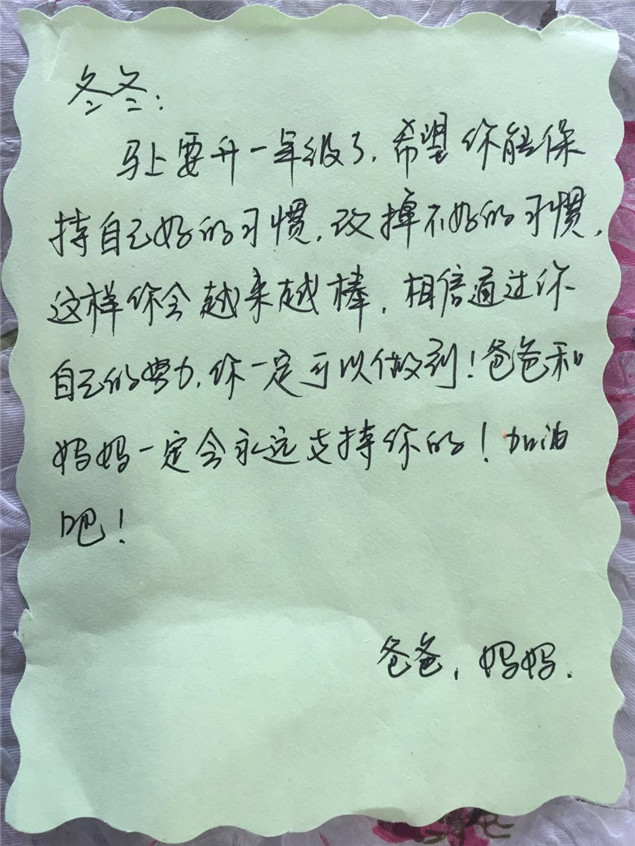 冬冬：
马上要升一年级了，希望你能保
持自己好的习惯，改掉不好的习惯，
这样你会越来越棒，相信通过你
自己的努力，你一定可以做到！爸爸和
妈妈一定会永远支持你的！加油
吧！
爸爸，妈妈．